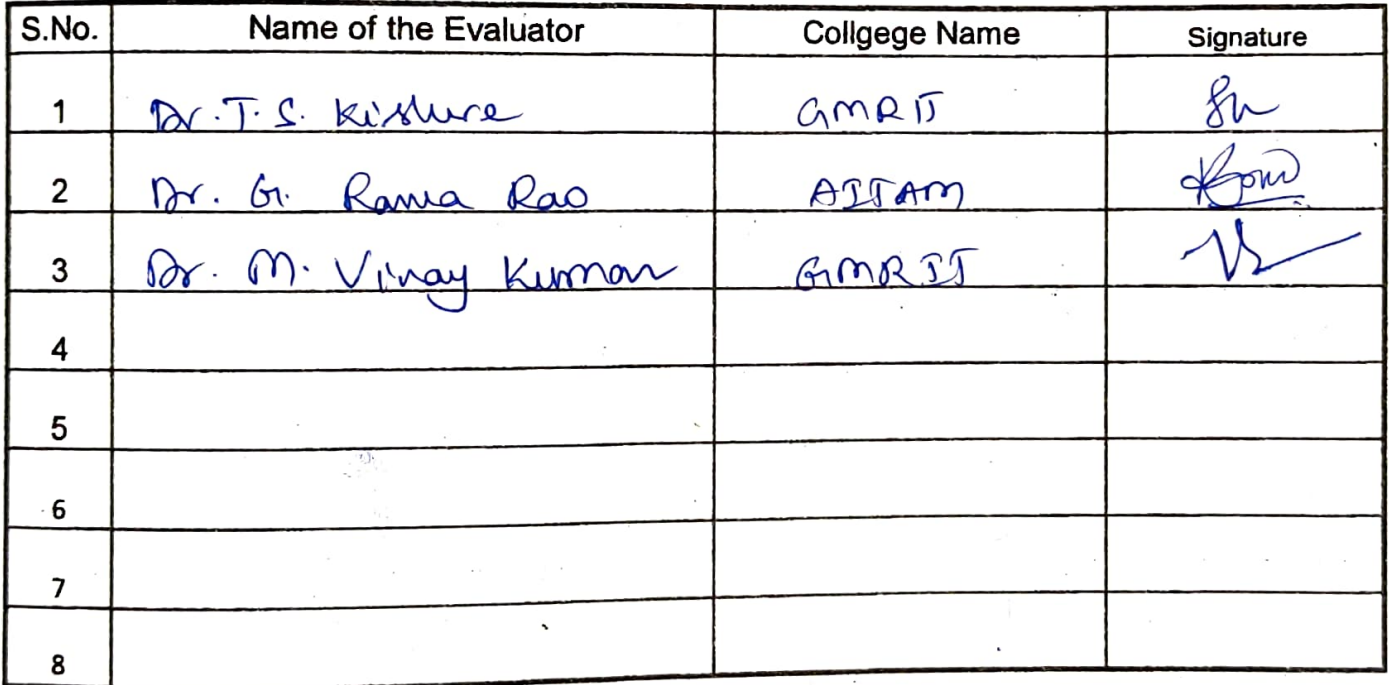 S.No. Name of the Evaluator Collgege Name Signature
1 Dr. T. S. Kishore GMRIT
2 Dr. G. Rama Rao AITAM
3 Dr. M. Vinay Kumar GMRIT
4
5
6
7
8